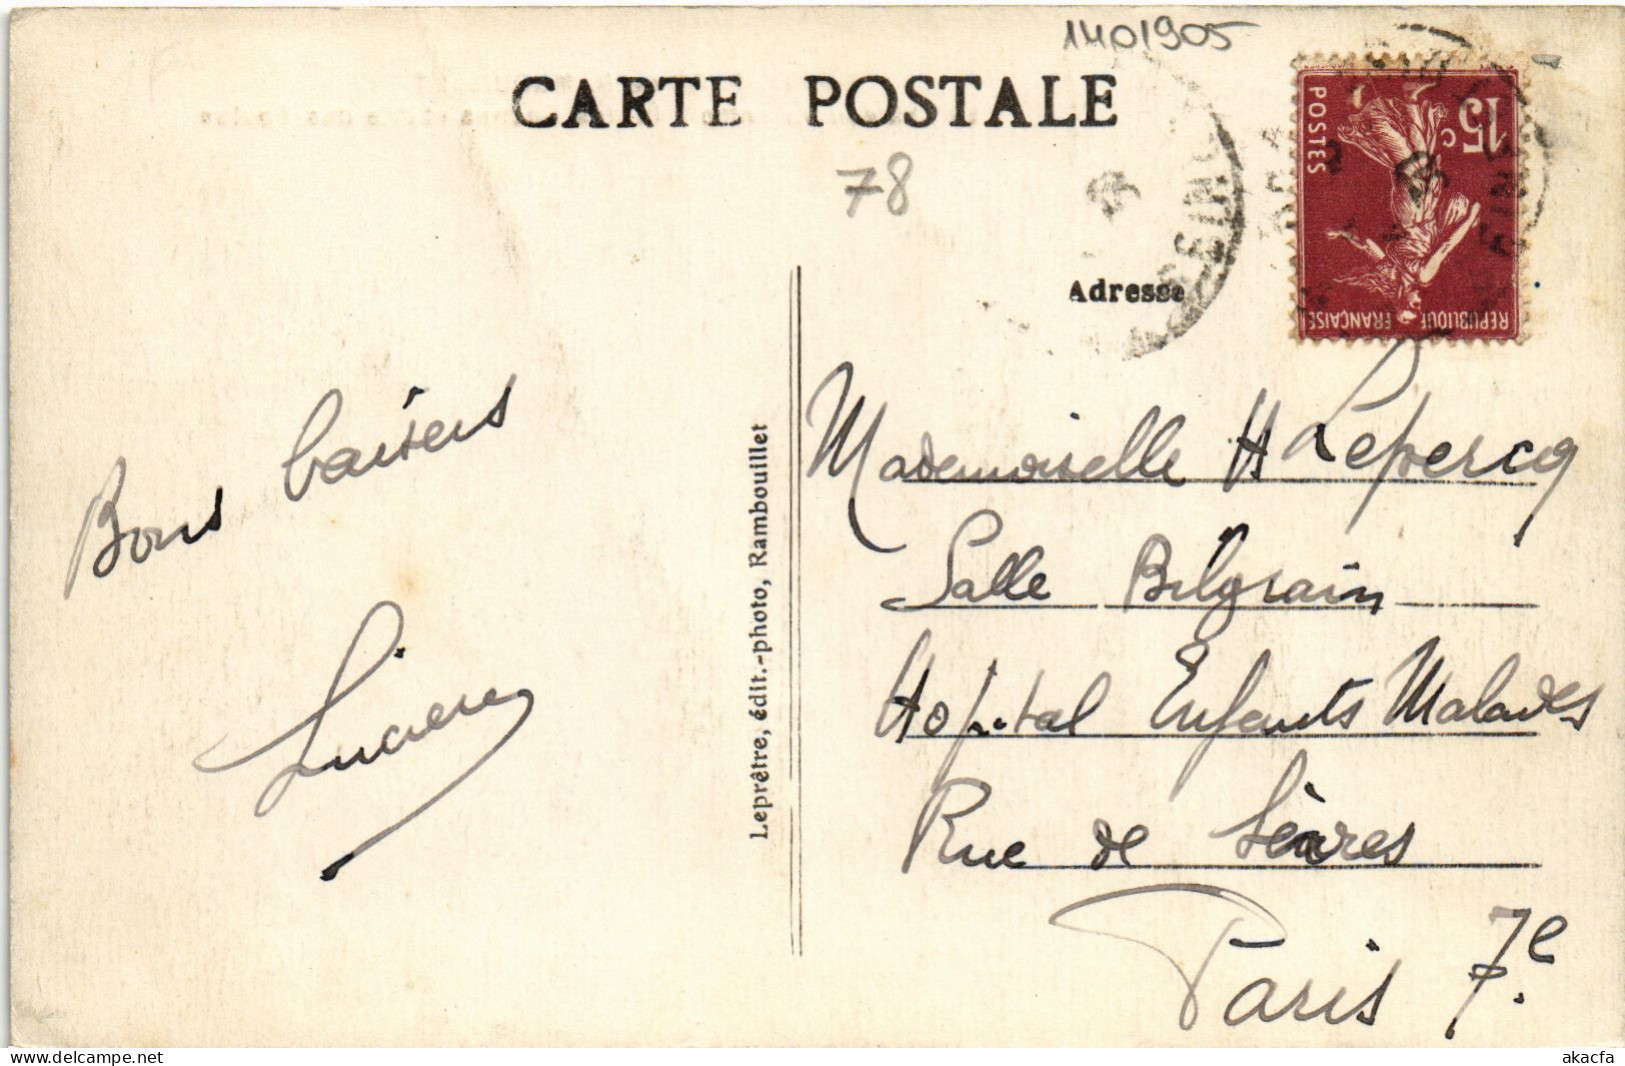 1401905
CARTE POSTALE
78
Adresse
15c
POSTES
REPUBLIQUE FRANÇAISE
Bons baisers
Lucien
Leprêtre, édit.-photo, Rambouillet
Mademoiselle H Lepercq
Salle Bilgrain
Hopital Enfants Malades
Rue de Sèvres
Paris 7e.
akacfa